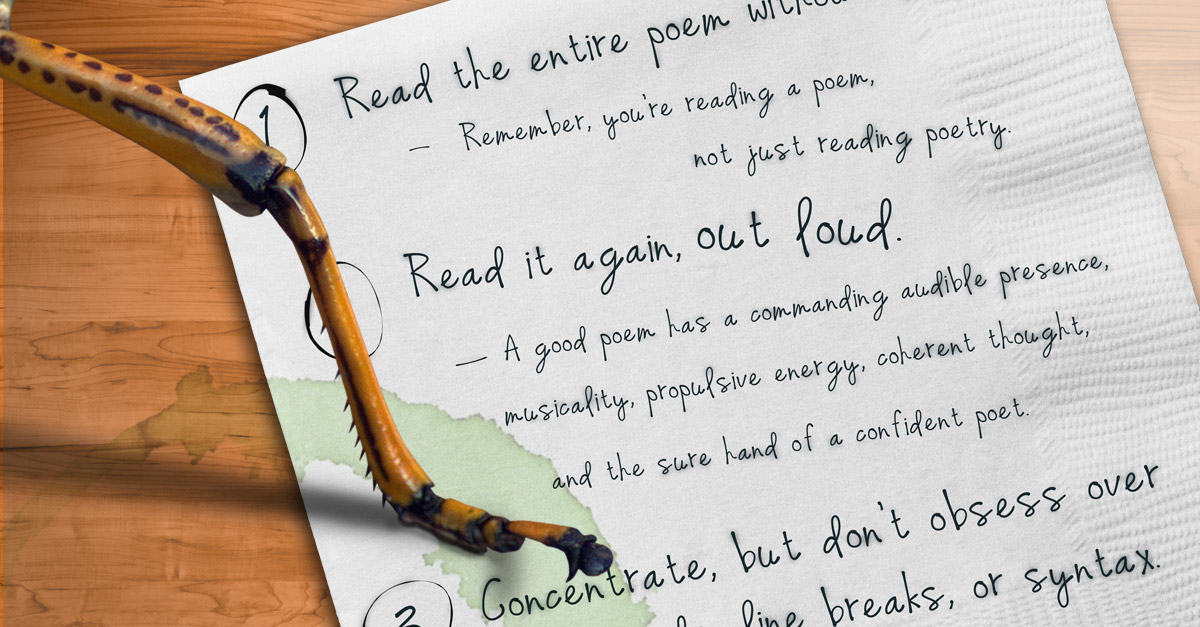 1 Read the entire poem
– Remember, you're reading a poem,
not just reading poetry.
Read it again, out loud.
– A good poem has a commanding audible presence,
musicality, propulsive energy, coherent thought,
and the sure hand of a confident poet.
3 Concentrate, but don't obsess over
line breaks, or syntax.